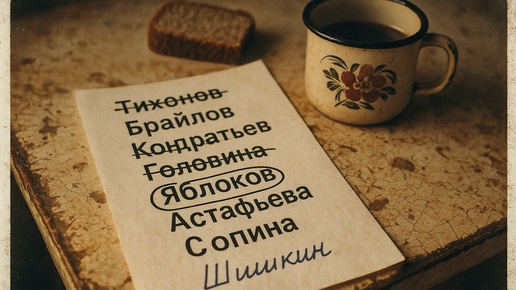 Тихонов
Брайлов
Кондратьев
Головина
Яблоков
Астафьева
Сопина
Шишкин